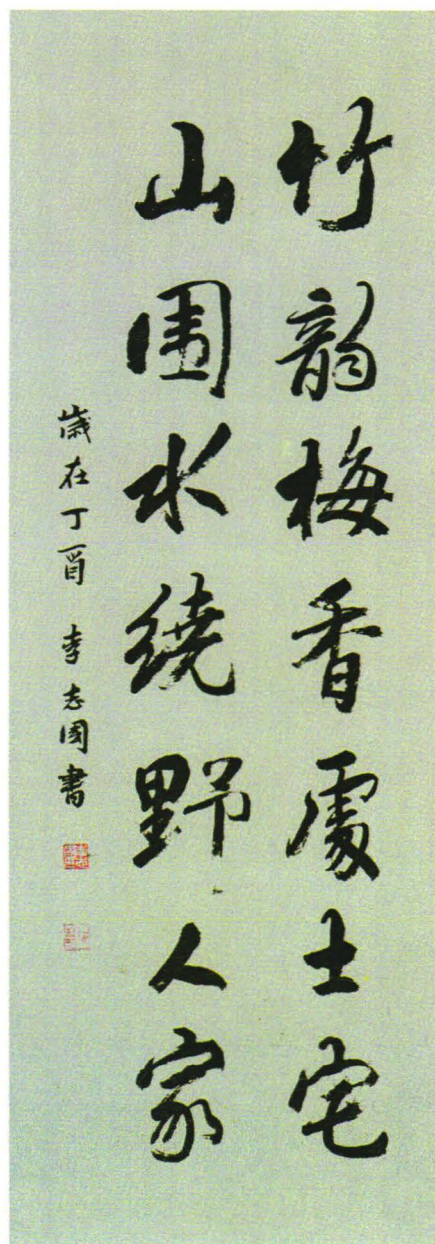 竹韵梅香處士宅
山围水繞野人家
歲在丁酉 李志国書